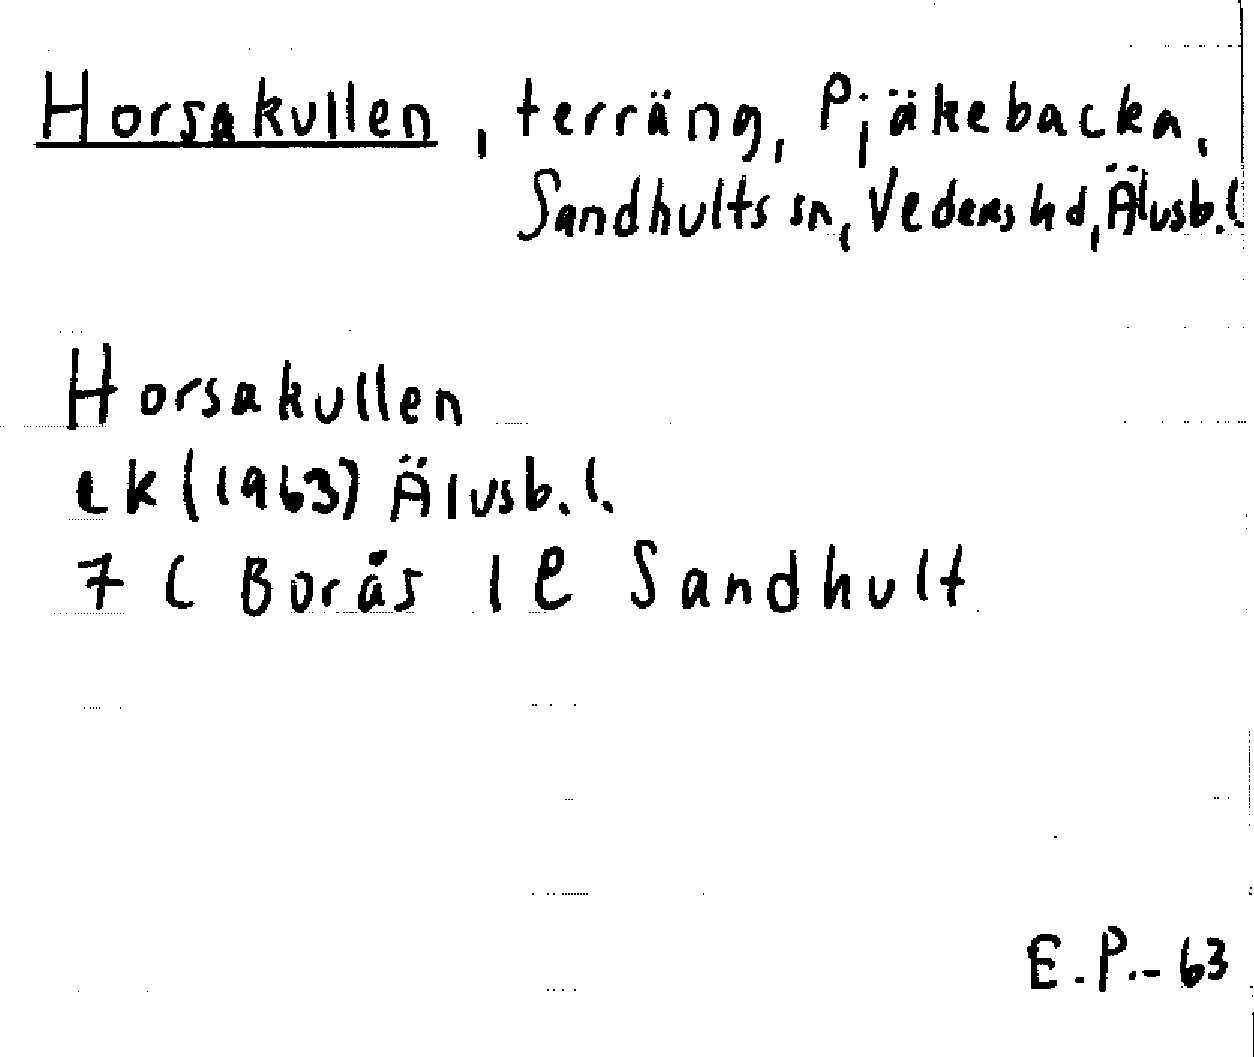 Horsakullen, terräng, Pjäkebacka,
Sandhults sn, Vedens hd, Älvsb. l
Horsakullen
ek (1963) Älvsb. l.
7 C Borås 1 e Sandhult
E.P.-63